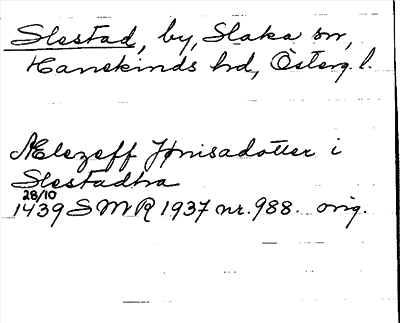 Slestad, by, Slaka sn,
Hanekinds hd, Österg. l.
Ælezeff Jønisadotter i
Slestadha
28/10
1439 SMR 1937 nr. 988. orig.